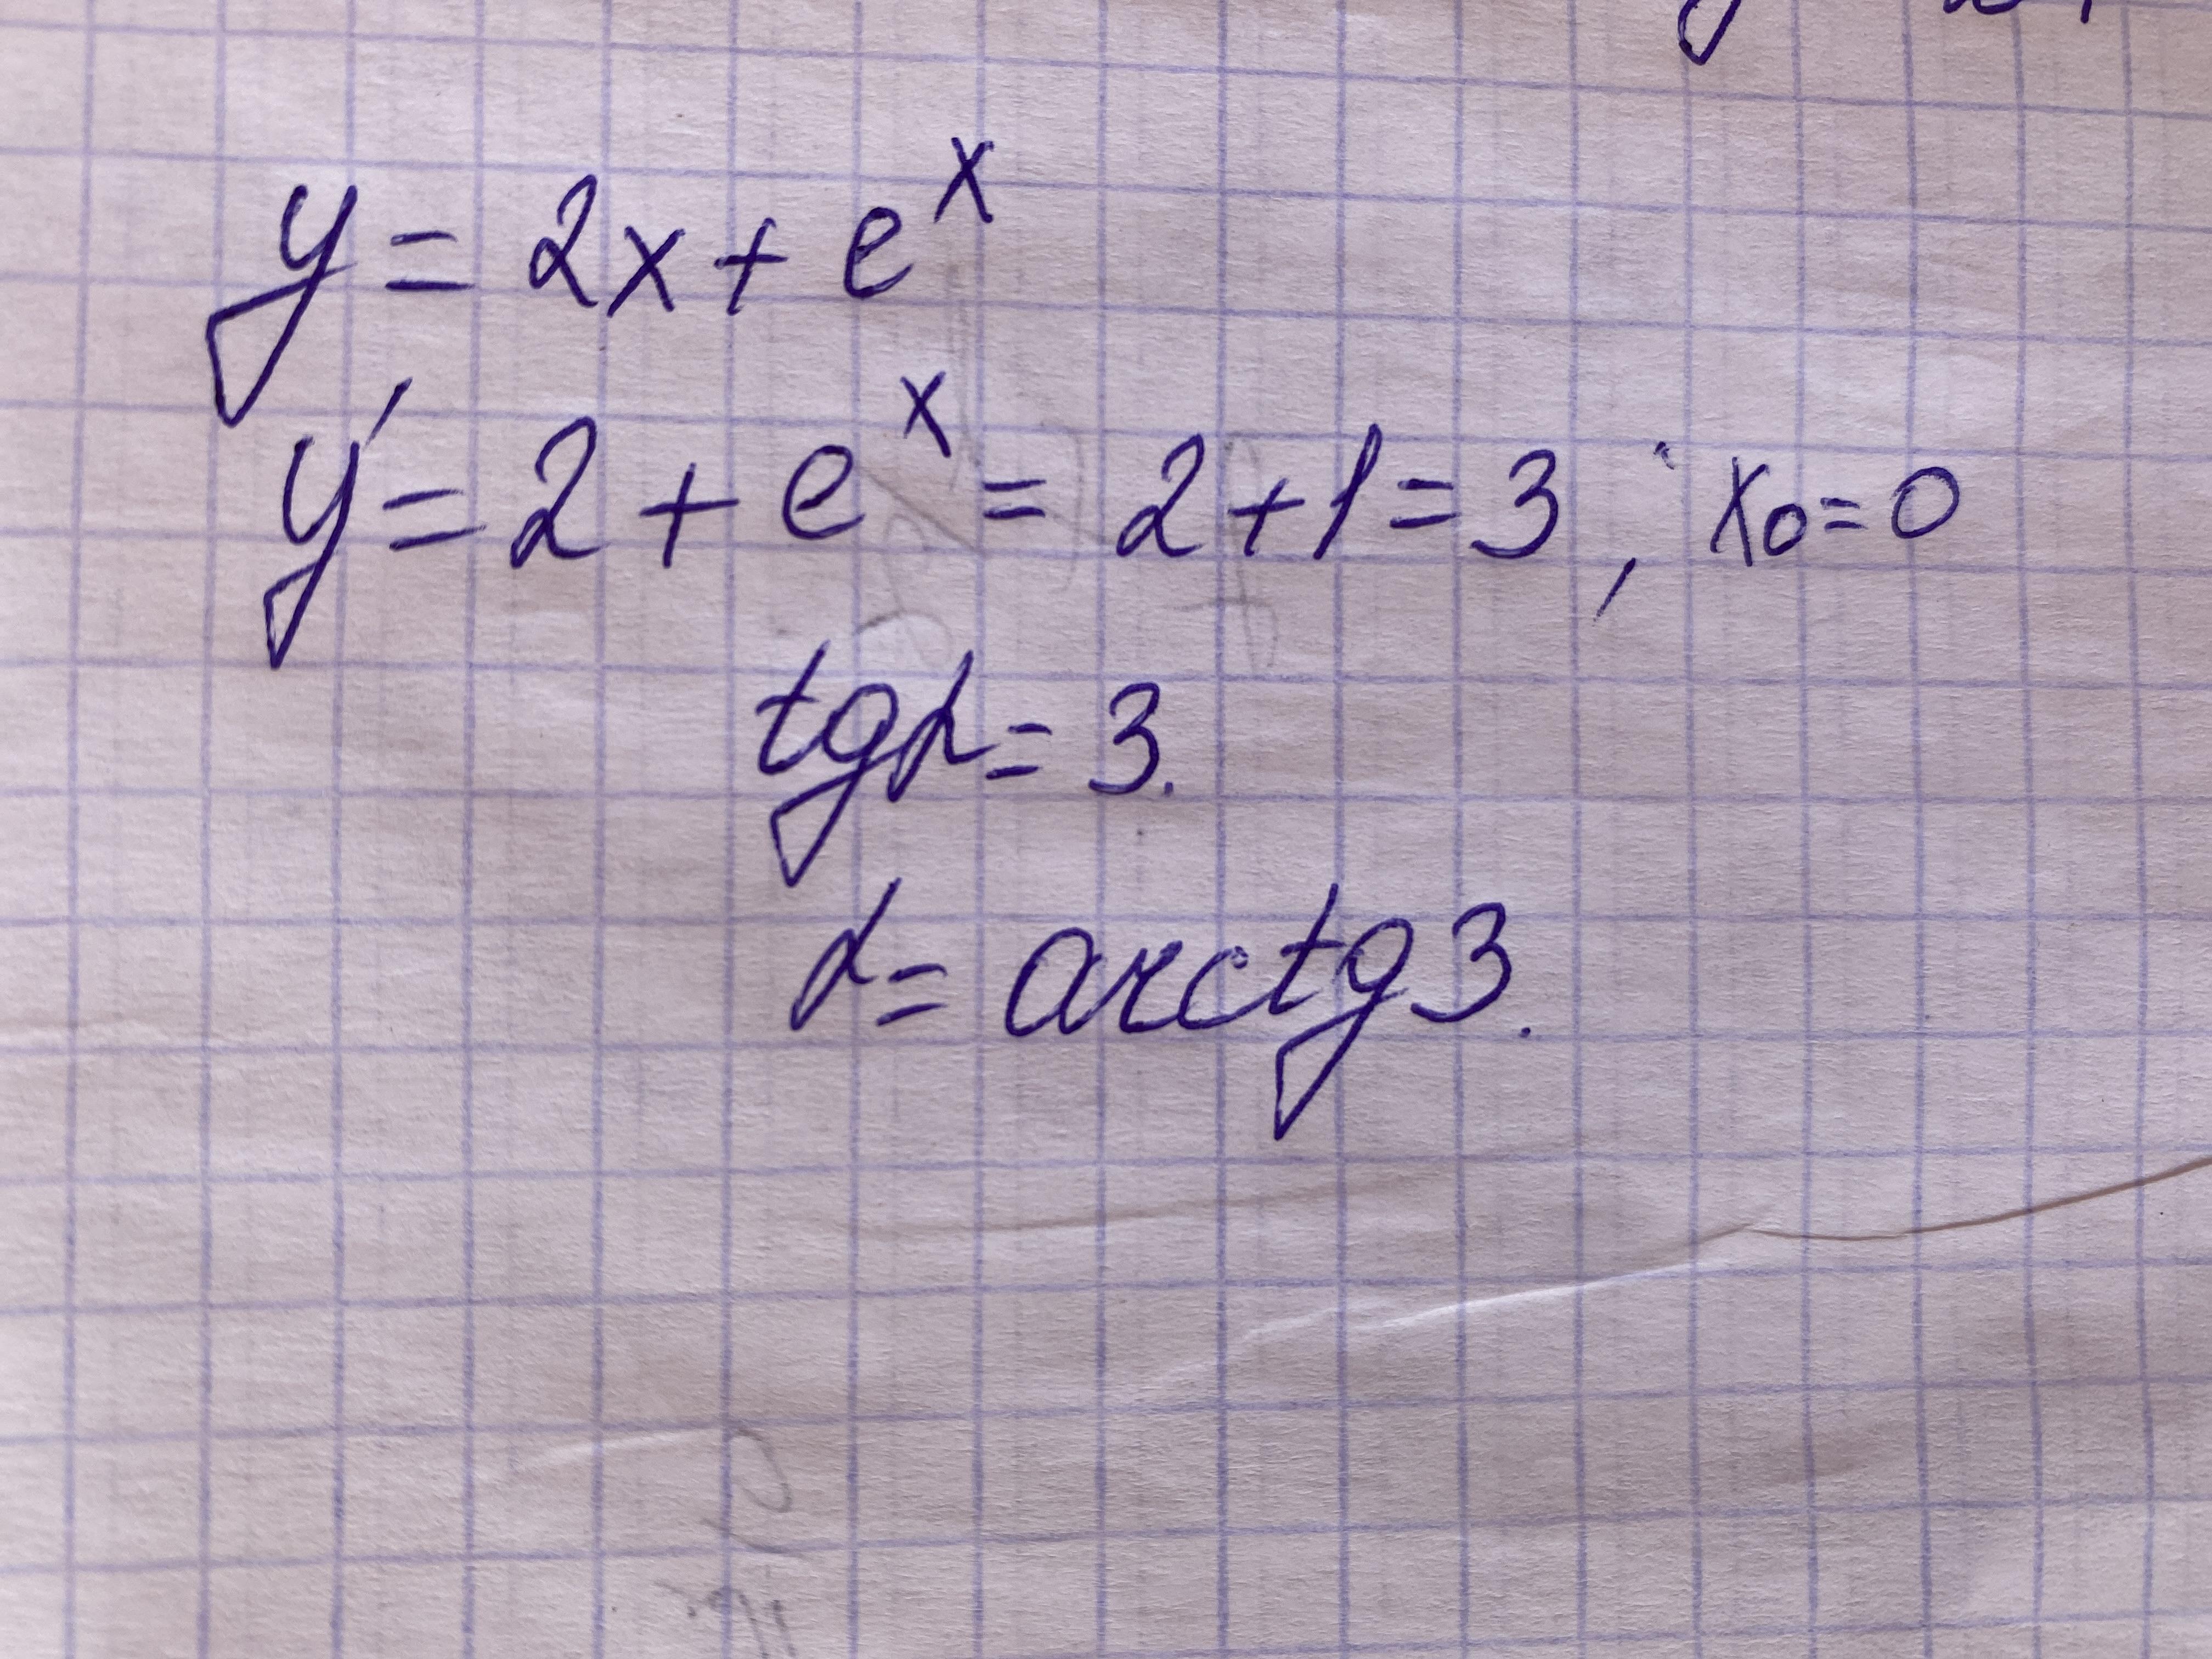 y = 2x + e^x
y' = 2 + e^x = 2 + 1 = 3, x₀ = 0
tgα = 3.
α = arctg 3.